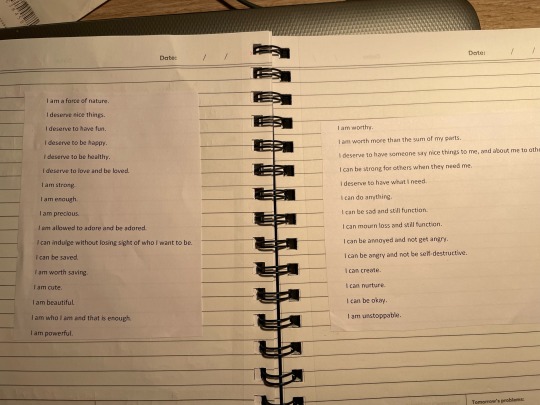 Date: / /
I am a force of nature.
I deserve nice things.
I deserve to have fun.
I deserve to be happy.
I deserve to be healthy.
I deserve to love and be loved.
I am strong.
I am enough.
I am precious.
I am allowed to adore and be adored.
I can indulge without losing sight of who I want to be.
I can be saved.
I am worth saving.
I am cute.
I am beautiful.
I am who I am and that is enough.
I am powerful.
Date: / /
I am worthy.
I am worth more than the sum of my parts.
I deserve to have someone say nice things to me, and about me to
I can be strong for others when they need me.
I deserve to have what I need.
I can do anything.
I can be sad and still function.
I can mourn loss and still function.
I can be annoyed and not get angry.
I can be angry and not be self-destructive.
I can create.
I can nurture.
I can be okay.
I am unstoppable.
Tomorrow's problems: